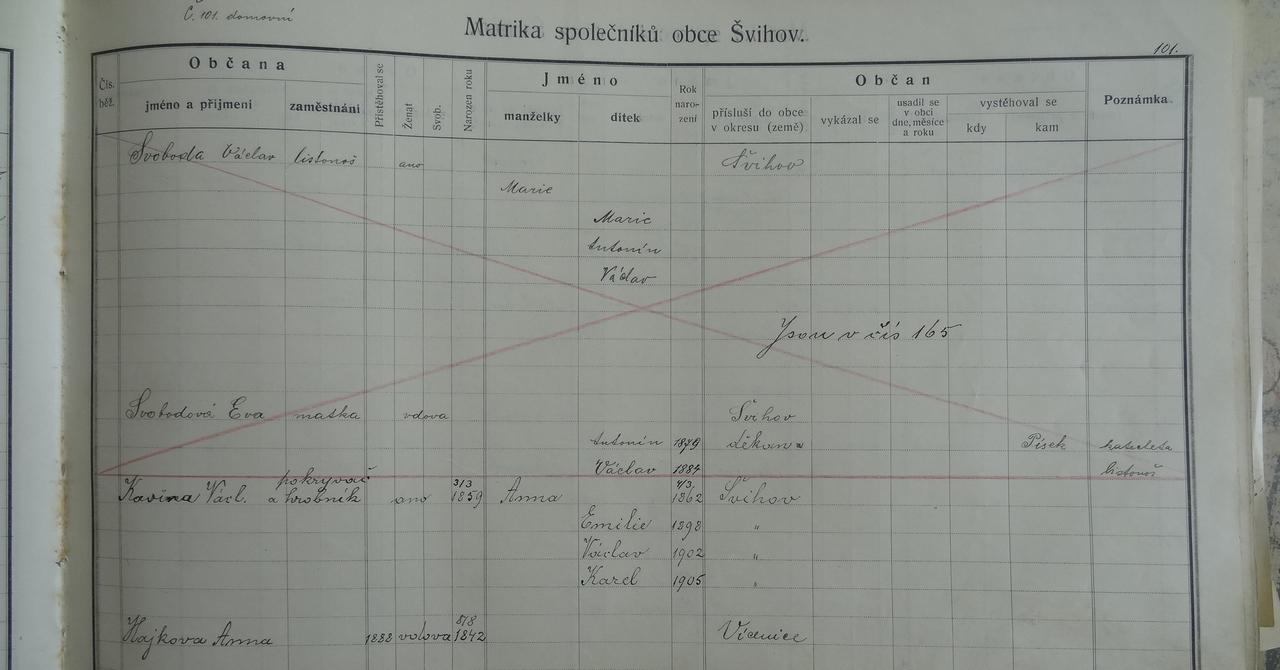 Č. 101. domovní
Matrika společníků obce Švihov.
101.
Čís. běž.
Občana
jméno a přijmení
zaměstnání
Přistěhoval se
Ženat
Svob.
Narozen roku
Jméno
manželky
dítek
Rok naro- zení
Občan
přísluší do obce v okresu (země)
vykázal se
usadil se v obci dne, měsíce a roku
vystěhoval se
kdy
kam
Poznámka
Svoboda Václav listonoš ano Švihov
Marie
Marie
Antonín
Václav
Jsou v čís 165
Svobodová Eva matka vdova Švihov
Antonín 1879 děkan Písek katecheta
Václav 1884 listonoš
pokryvač 3/3 4/3
Kavina Václ. a hrobník ano 1859 Anna 1862 Švihov
Emilie 1898 "
Václav 1902 "
Karel 1905 "
8/8
Hajkova Anna 1888 vdova 1842 Vícenice